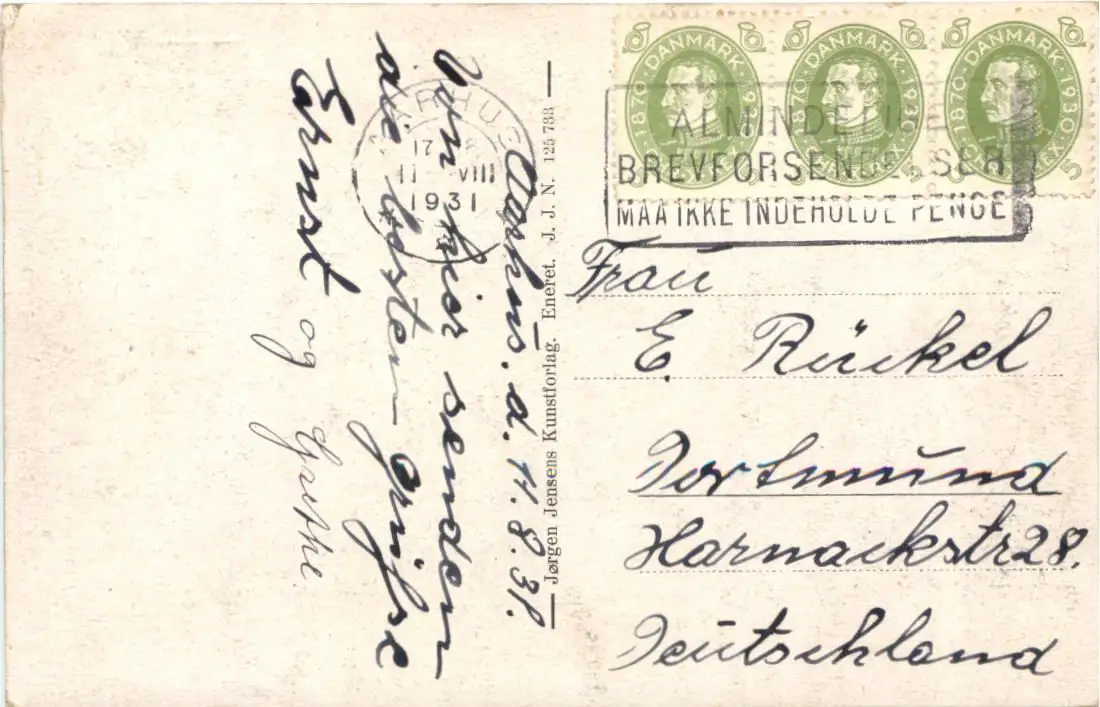 Aarhus. d. 11.8.31.
Von hier senden
die besten Grüße
Ernst og
Grethe
Jørgen Jensens Kunstforlag. Eneret. J. J. N. 125 733
AARHUS
17-18
11 VIII
1931
DANMARK
1870 1930
5
DANMARK
1870 1930
5
DANMARK
1870 1930
5
ALMINDELIGE
BREVFORSENDELSER
MAA IKKE INDEHOLDE PENGE
Frau
E. Rückel
Dortmund
Harnackstr 28.
Deutschland